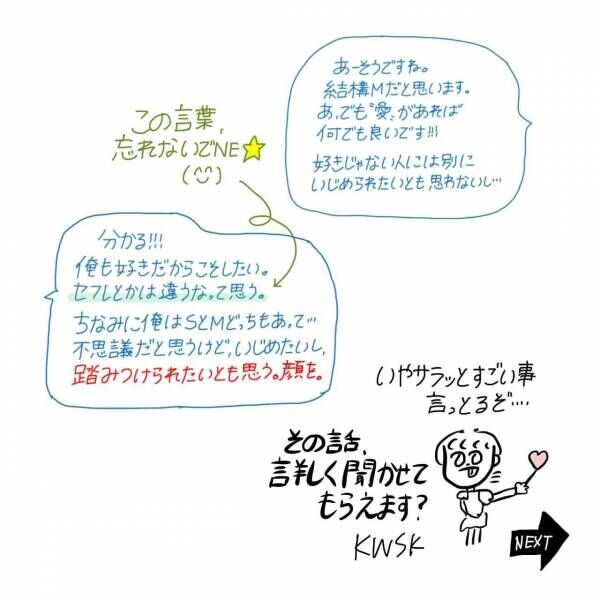 あーそうですね。
結構Mだと思います。
あ、でも"愛"があれば
何でも良いです!!!
好きじゃない人には別に
いじめられたいとも思わないし…
この言葉、
忘れないでNE
分かる!!!
俺も好きだからこそしたい。
セフレとかは違うなって思う。
ちなみに俺はSとMどっちもあって…
不思議だと思うけど、いじめたいし、
踏みつけられたいとも思う。顔を。
いやサラッとすごい事
言っとるぞ…
その話、
詳しく聞かせて
もらえます?
KWSK
NEXT